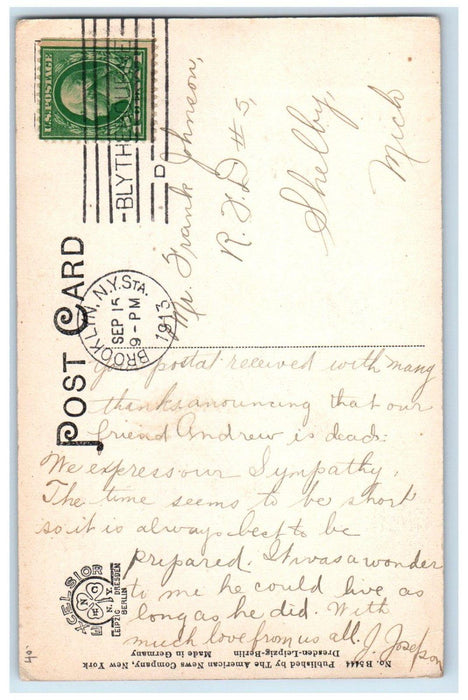 U.S. POSTAGE
BLYTHEBOURNE
D
BROOKLYN, N.Y. STA.
SEP 15
9-PM
1913
POST CARD
Mr. Frank Johnson,
R.F.D #5,
Shelby,
Mich
postal received with many
thanks anouncing that our
friend Andrew is dead:
We express our Sympathy.
The time seems to be short
so it is always best to be
prepared. It was a wonder
to me he could live as
long as he did. With
much love from us all. J. Josepson
EXCELSIOR
N.Y.
LEIPZIG DRESDEN
BERLIN
No. B3444 Published by The American News Company, New York
Dresden-Leipzig-Berlin Made in Germany